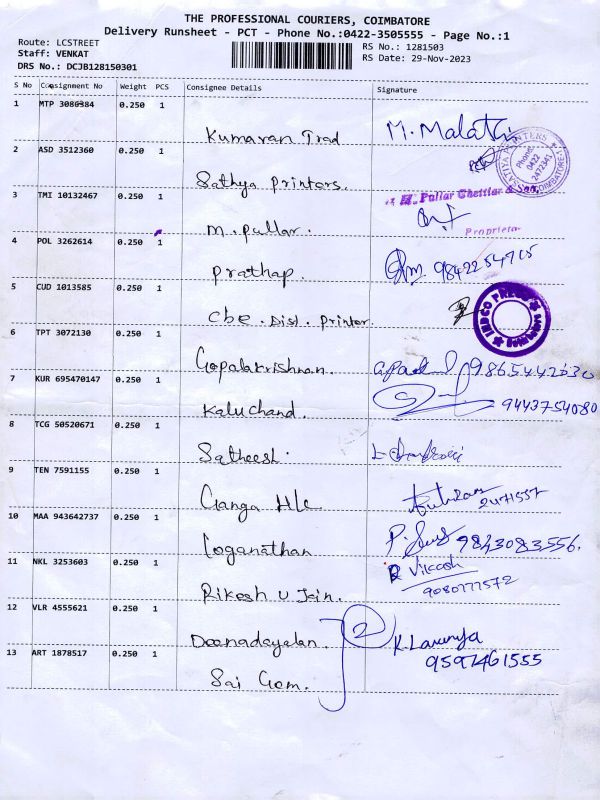 THE PROFESSIONAL COURIERS, COIMBATORE
Delivery Runsheet - PCT - Phone No.:0422-3505555 - Page No.:1
Route: LCSTREET
RS No.: 1281503
Staff: VENKAT
RS Date: 29-Nov-2023
DRS No.: DCJB128150301
S No Consignment No Weight PCS Consignee Details Signature
1 MTP 3086384 0.250 1
Kumaran Trad M. Malathi
2 ASD 3512360 0.250 1
Sathya Printers.
SATHYA PRINTERS
Phone: 0422 2472341
COIMBATORE
3 TMI 10132467 0.250 1
M. Pullar Chettiar & Son,
m. pullar.
Proprietor
4 POL 3262614 0.250 1
Prathap. 98422 54715
5 CUD 1013585 0.250 1
Cbe. Dist. Printer.
6 TPT 3072130 0.250 1
Gopalakrishnan. 9865442630
7 KUR 695470147 0.250 1
Kaluchand. 9443754080
8 TCG 50520671 0.250 1
Satheesh.
9 TEN 7591155 0.250 1
Ganga H/c 2471557
10 MAA 943642737 0.250 1
Loganathan 9843083556.
11 NKL 3253603 0.250 1
Vikash
9080777572
Rikesh U Jain.
12 VLR 4555621 0.250 1
Deenadayalan. K. Lavanya
13 ART 1878517 0.250 1
9597461555
Sai Gem.